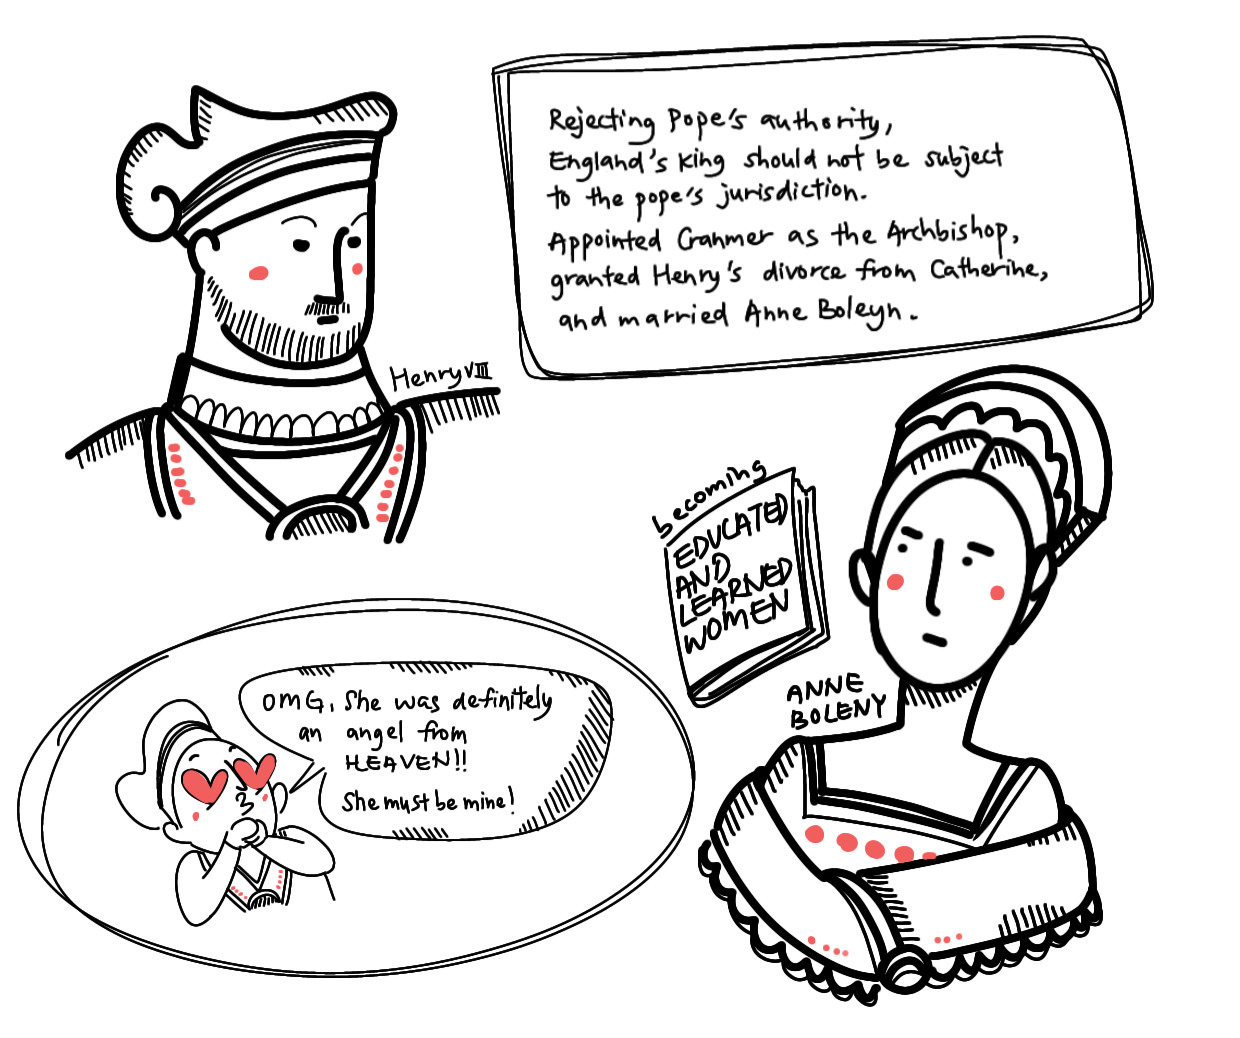 Rejecting Pope's authority,
England's king should not be subject
to the pope's jurisdiction.
Appointed Cranmer as the Archbishop,
granted Henry's divorce from Catherine,
and married Anne Boleyn.
Henry VIII
becoming
EDUCATED
AND
LEARNED
WOMEN
ANNE
BOLENY
OMG, She was definitely
an angel from
HEAVEN!!
She must be mine!